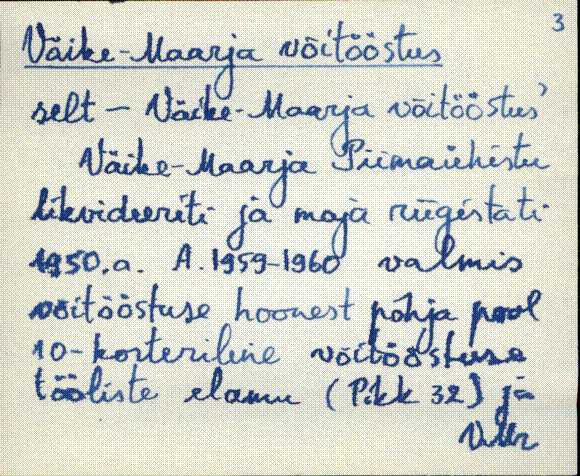 3
Väike-Maarja võitööstus
selt - Väike-Maarja võitööstus'
Väike-Maarja Piimaühistu
likvideeriti ja maja riigistati
1950.a. A. 1959-1960 valmis
võitööstuse hoonest põhja pool
10-korteriline võitööstuse
tööliste elamu (Pikk 32) ja